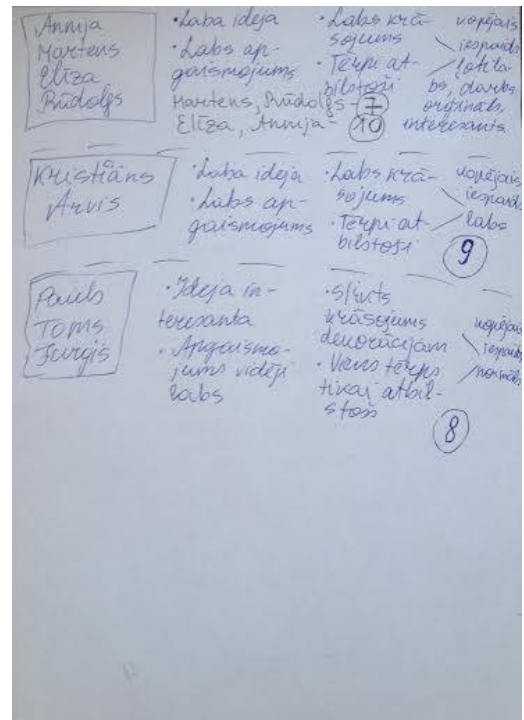 Annija
Martens
Elīza
Rūdolfs
• Laba ideja
• Labs ap-
gaismojums
• Labs krā-
sojums
• Tērpi at-
bilstoši
kopējais
iespaids
ļoti la-
bs, darbs
oriģināls,
interesants
Martens, Rūdolfs - 7
Elīza, Annija - 10
Kristiāns
Arvis
• Laba ideja
• Labs ap-
gaismojums
• Labs krā-
sojums
• Tērpi at-
bilstoši
kopējais
iespaids
labs
9
Pauls
Toms
Jurģis
• Ideja in-
teresanta
• Apgaismo-
jums vidēji
labs
• slikts
krāsojums
dekorācijām
• Viens tērps
tikai atbil-
stošs
kopējais
iespaids
normāls
8